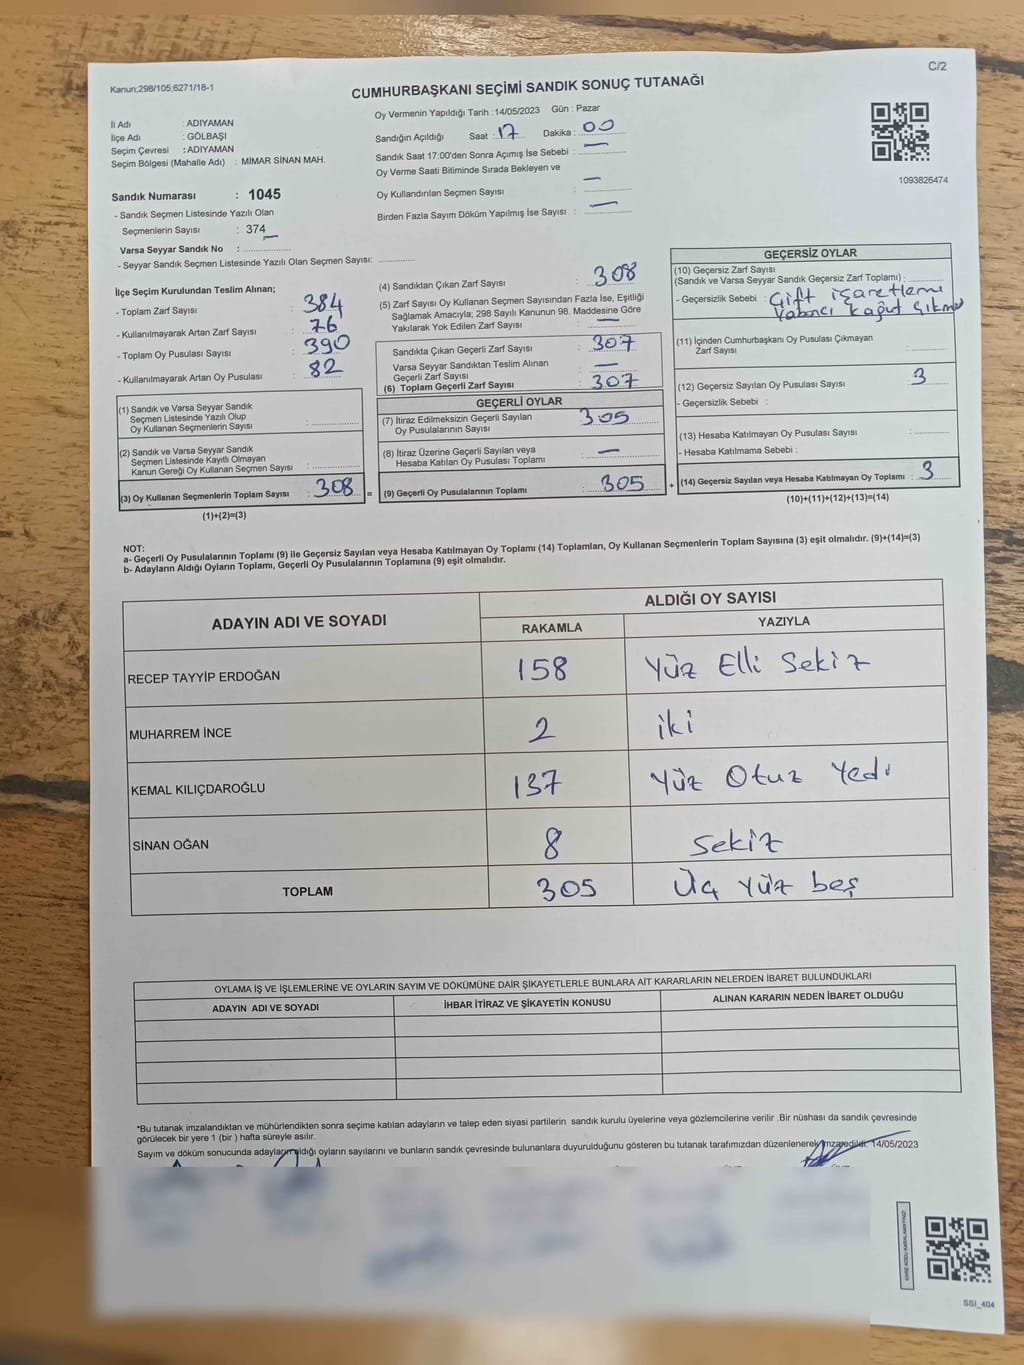 C/2
Kanun;298/105;6271/18-1
CUMHURBAŞKANI SEÇİMİ SANDIK SONUÇ TUTANAĞI
İl Adı : ADIYAMAN
İlçe Adı : GÖLBAŞI
Seçim Çevresi : ADIYAMAN
Seçim Bölgesi (Mahalle Adı) : MİMAR SİNAN MAH.
Sandık Numarası : 1045
- Sandık Seçmen Listesinde Yazılı Olan
Seçmenlerin Sayısı : 374
Varsa Seyyar Sandık No :
- Seyyar Sandık Seçmen Listesinde Yazılı Olan Seçmen Sayısı:
Oy Vermenin Yapıldığı Tarih : 14/05/2023 Gün : Pazar
Sandığın Açıldığı Saat : 17 Dakika : 00
Sandık Saat 17:00'den Sonra Açımış İse Sebebi : —
Oy Verme Saati Bitiminde Sırada Bekleyen ve
Oy Kullandırılan Seçmen Sayısı : —
Birden Fazla Sayım Döküm Yapılmış İse Sayısı : —
1093826474
İlçe Seçim Kurulundan Teslim Alınan;
- Toplam Zarf Sayısı : 384
- Kullanılmayarak Artan Zarf Sayısı : 76
- Toplam Oy Pusulası Sayısı : 390
- Kullanılmayarak Artan Oy Pusulası : 82
(1) Sandık ve Varsa Seyyar Sandık
Seçmen Listesinde Yazılı Olup
Oy Kullanan Seçmenlerin Sayısı :
(2) Sandık ve Varsa Seyyar Sandık
Seçmen Listesinde Kayıtlı Olmayan
Kanun Gereği Oy Kullanan Seçmen Sayısı :
(3) Oy Kullanan Seçmenlerin Toplam Sayısı : 308 =
(1)+(2)=(3)
(4) Sandıktan Çıkan Zarf Sayısı : 308
(5) Zarf Sayısı Oy Kullanan Seçmen Sayısından Fazla İse, Eşitliği
Sağlamak Amacıyla; 298 Sayılı Kanunun 98. Maddesine Göre
Yakılarak Yok Edilen Zarf Sayısı : —
Sandıkta Çıkan Geçerli Zarf Sayısı : 307
Varsa Seyyar Sandıktan Teslim Alınan
Geçerli Zarf Sayısı : —
(6) Toplam Geçerli Zarf Sayısı : 307
GEÇERLİ OYLAR
(7) İtiraz Edilmeksizin Geçerli Sayılan
Oy Pusulalarının Sayısı : 305
(8) İtiraz Üzerine Geçerli Sayılan veya
Hesaba Katılan Oy Pusulası Toplamı : —
(9) Geçerli Oy Pusulalarının Toplamı : 305 +
GEÇERSİZ OYLAR
(10) Geçersiz Zarf Sayısı
(Sandık ve Varsa Seyyar Sandık Geçersiz Zarf Toplamı) :
- Geçersizlik Sebebi : Çift işaretlemi
Yabancı kağıt çıkmış
(11) İçinden Cumhurbaşkanı Oy Pusulası Çıkmayan
Zarf Sayısı :
(12) Geçersiz Sayılan Oy Pusulası Sayısı : 3
- Geçersizlik Sebebi :
(13) Hesaba Katılmayan Oy Pusulası Sayısı :
- Hesaba Katılmama Sebebi :
(14) Geçersiz Sayılan veya Hesaba Katılmayan Oy Toplamı : 3
(10)+(11)+(12)+(13)=(14)
NOT:
a- Geçerli Oy Pusulalarının Toplamı (9) ile Geçersiz Sayılan veya Hesaba Katılmayan Oy Toplamı (14) Toplamları, Oy Kullanan Seçmenlerin Toplam Sayısına (3) eşit olmalıdır. (9)+(14)=(3)
b- Adayların Aldığı Oyların Toplamı, Geçerli Oy Pusulalarının Toplamına (9) eşit olmalıdır.
ADAYIN ADI VE SOYADI
ALDIĞI OY SAYISI
RAKAMLA YAZIYLA
RECEP TAYYİP ERDOĞAN 158 Yüz Elli Sekiz
MUHARREM İNCE 2 iki
KEMAL KILIÇDAROĞLU 137 Yüz Otuz Yedi
SİNAN OĞAN 8 Sekiz
TOPLAM 305 Üç Yüz beş
OYLAMA İŞ VE İŞLEMLERİNE VE OYLARIN SAYIM VE DÖKÜMÜNE DAİR ŞİKAYETLERLE BUNLARA AİT KARARLARIN NELERDEN İBARET BULUNDUKLARI
ADAYIN ADI VE SOYADI İHBAR İTİRAZ VE ŞİKAYETİN KONUSU ALINAN KARARIN NEDEN İBARET OLDUĞU
*Bu tutanak imzalandıktan ve mühürlendikten sonra seçime katılan adayların ve talep eden siyasi partilerin sandık kurulu üyelerine veya gözlemcilerine verilir .Bir nüshası da sandık çevresinde
görülecek bir yere 1 (bir ) hafta süreyle asılır.
Sayım ve döküm sonucunda adayların aldığı oyların sayılarını ve bunların sandık çevresinde bulunanlara duyurulduğunu gösteren bu tutanak tarafımızdan düzenlenerek imza edildi. 14/05/2023
SSI_404